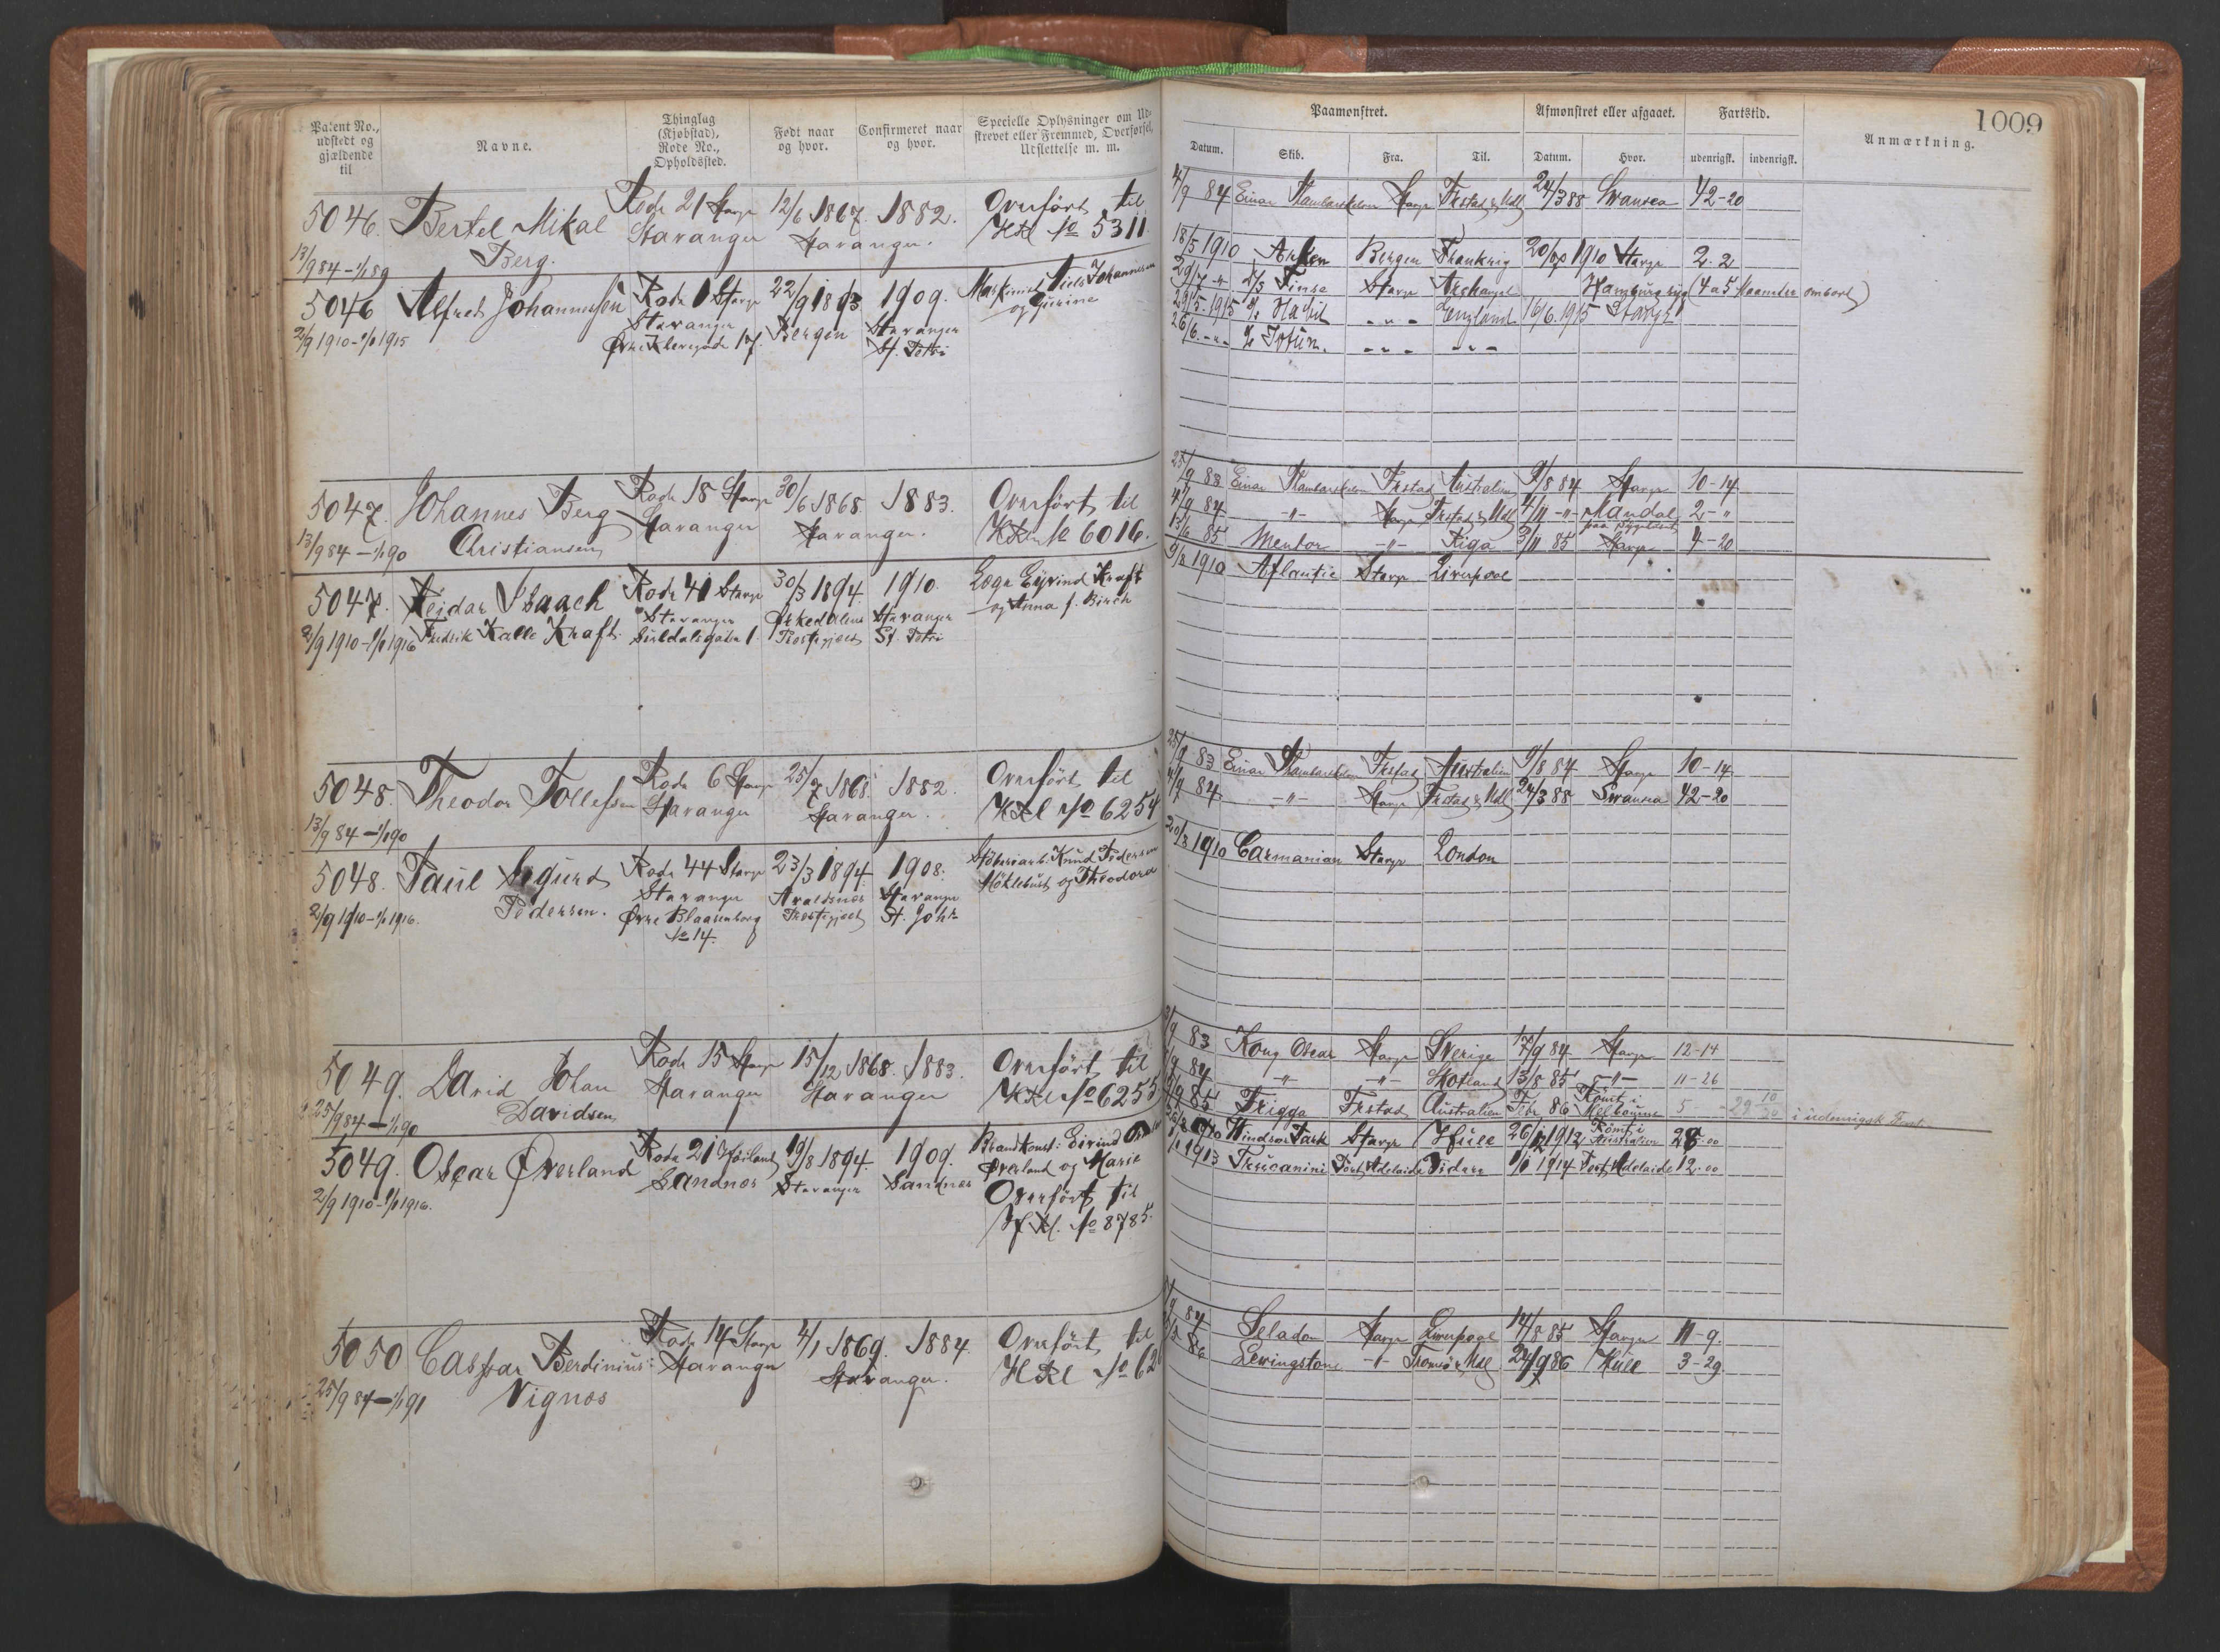 1009
Patent No., udstedt og gjældende til
Navne.
Thinglag (Kjøbstad), Rode No., Opholdssted.
Født naar og hvor.
Confirmeret naar og hvor.
Specielle Oplysninger om Udskrevet eller Fremmed, Overførsel, Udslettelse m. m.
Paamønstret.
Afmønstret eller afgaaet.
Fartstid.
Anmærkning.
Datum. Skib. Fra. Til. Datum. Hvor. udenrigsk. indenrigsk.
5046. Bertel Mikal Rode 21 Stavgr 12/6 1867. 1882. Overført til
13/9 84 - 1/1 89 Berg. Stavanger Stavanger. HRl No 5311.
4/9 84 Einar Stavgr 24/3 88 Swansea 42-20
5046 Alfred Johannessen Rode 1 Stavgr 22/9 1893 1909. Maskinist Niels Johannesen
2/9 1910 - 1/1 1915 Stavanger Bergen Stavanger og Gurine
St. Petri
18/5 1910 Bergen Frankrig 1910 Stavgr 2-2
29/7 -"- D/S Finse Stavgr Archangel Hamburg syg (4 a 5 Maaneder ombord)
29/5. 1915 England 16/6. 1915 Stavgr
26/6. -"- Jotun. -"- -"-
5047. Johannes Berg Rode 18 Stavgr 30/6 1868. 1883. Overført til
13/9 84 - 1/1 90 Christiansen Stavanger Stavanger. HRl No 6016.
25/9 83 Einar Frstad Australien 9/8 84 Stavgr 10-14
4/9 84 -"- Stavgr 4/11 -"- Mandal 2-"
13/6 85 Mentor -"- Riga 3/11 85 Stavgr 4-20
5047. Reidar Isaach Rode 41 Stavgr 30/3 1894. 1910. Læge Eyvind Kraft
2/9 1910 - 1/1 1916 Fredrik Kalle Kraft. Stavanger Ørkedalens Stavanger og Anna f. Birch
Suldalsgaden 1. Præstegjæld St. Petri
1910 Atlantic Stavgr Liverpool
5048. Theodor Tollefsen Rode 6 Stavgr 25/7 1868. 1882. Overført til
13/9 84 - 1/1 90 Stavanger Stavanger. HRl No 6254
25/9 83 Einar Frstad Australien 9/8 84 Stavgr 10-14
4/9 84 -"- Stavgr 24/3 88 Swansea 42-20
5048. Paul Sigurd Rode 44 Stavgr 23/3 1894. 1908. Støberiarb. Knud Pedersen
2/9 1910 - 1/1 1916. Pedersen. Stavanger Stavanger og Theodora
Øvre Blaasenborg Præstegjæld St. Joh.
No 14.
1910 Carmanian Stavgr London
5049. David Johan Rode 15 Stavgr 15/12 1868. 1883. Overført til
25/9 84 - 1/1 90 Davidsen Stavanger Stavanger HRl No 6255
83 Kong Oscar Stavgr Sverige 17/9 84 Stavgr 12-14
84 -"- -"- Skotland 13/8 85 -"- 11-26
85 Frigga Frstad Australien Febr. 86 Rømt i Melbourne 5 - 29 i udenrigsk Fart.
5049. Oscar Øverland Rode 21 Høiland 19/8 1894. 1909. Brandkonst: Eivind
2/9 1910 - 1/1 1916. Sandnes Stavanger Sandnes Øverland og Marie
Overført til
No 8785.
1910 Windsor Park Stavgr Hull 26/12 1912 Rømt i Australien 28-00
1913 Trucanini Port Adelaide 1914 Port Adelaide 12-00
5050 Caspar Berdinius Rode 14 Stavgr 4/1 1869. 1884. Overført til
25/9 84 - 1/1 91 Vignes Stavanger Stavanger. HRl No 62
84 Seladon Stavgr Liverpool 14/8 85 Stavgr 11-9.
86 Lewingstone -"- 24/9 86 Hull 3-29.